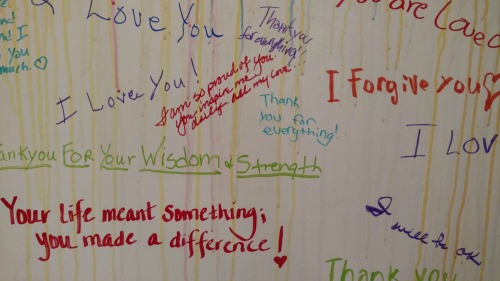 I Love You
Thank you
for everything!
you are Loved
and I
you
much.
I Love You!
I am so proud of you
You inspire me
daily all my love.
I Forgive you
Thank
you for
everything!
I LOV
ankyou For Your Wisdom & Strength
Your Life meant something;
you made a difference!
I will be ok
Thank you